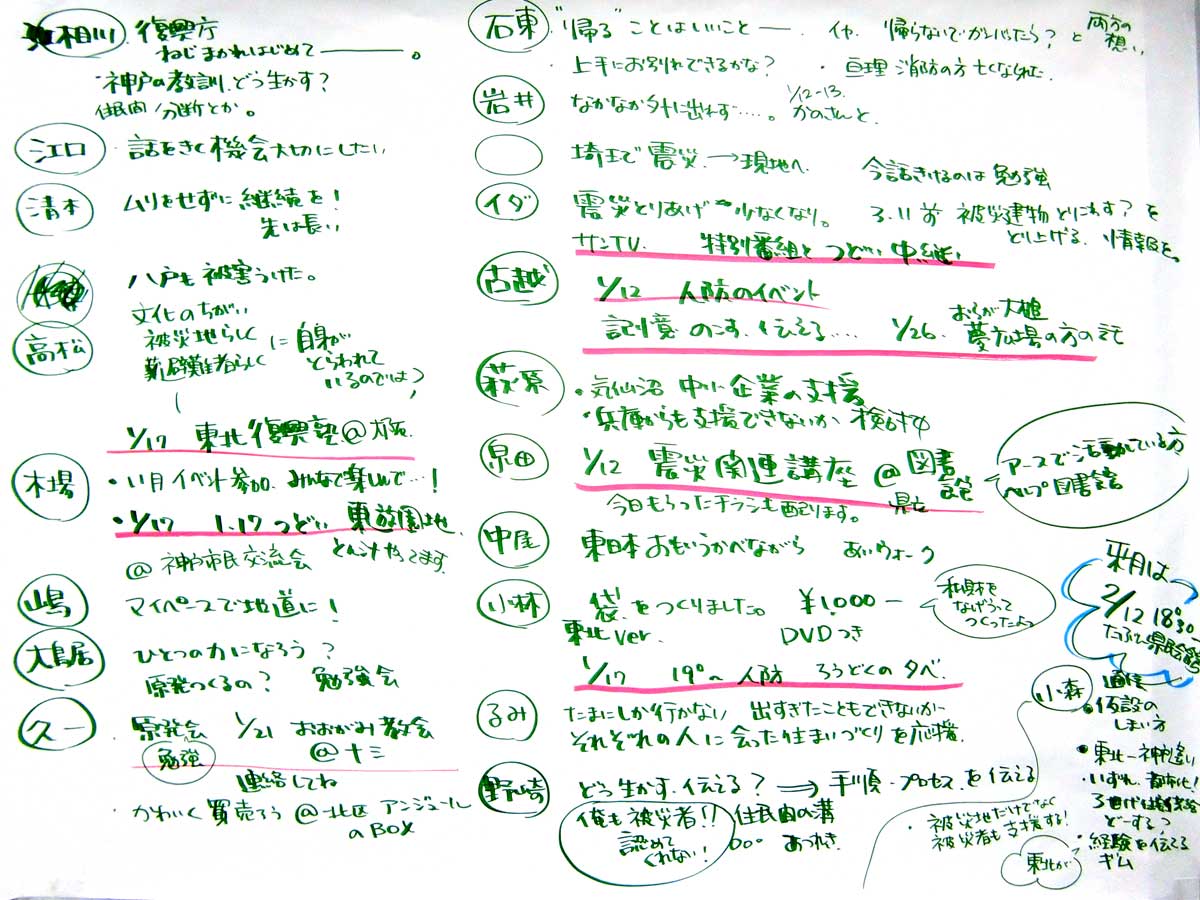 相川 復興庁
ねじまかれはじめて――。
・神戸の教訓、どう生かす?
住民間/分断とか。
江口 話をきく機会大切にしたい
清本 ムリをせずに継続を!
先は長い
八戸も被害うけた。
高松 文化のちがい
被災地らしく
避難者らしく に自身が
とらわれて
いるのでは?
1/17 東北復興塾@大阪
木場 ・11月イベント参加 みんなで楽しんで…!
・1/17 1.17つどい 東遊園地
@神戸市民交流会 とん汁やってます
嶋 マイペースで地道に!
大鳥居 ひとつの力になろう?
原発つくるの? 勉強会
久一 原発会 1/21 おおがみ教会
勉強 @十三
連絡してね
・かわいく買売ろう @北区 アンジュール
のBOX
石東 "帰る"ことはいいこと―. イヤ、帰らないでガンバったら?と両方の
想い
・上手にお別れできるかな? ・亘理 消防の方亡くなられた
岩井 なかなか外に出れず……。 1/12-13 かのさんと、
埼玉で震災→現地へ 今話きけるのは勉強
イダ 震災とりあげ少なくなり。 3.11前 被災建物とりこわす?を
とり上げる、情報を。
サンTV. 特別番組と つどい中継い
古越 1/12 人防のイベント
記憶 のこす、伝える… 1/26. おらが大槌
夢広場の方の話
萩原 ・気仙沼 中小企業の支援
・兵庫からも支援できないか 検討中
泉田 1/12 震災関連講座 @図書館
県立
今日もらったチラシも配ります。
アースで活動している方
ヘルプ図書館
中尾 東日本おもいうかべながら あいウォーク
小林 袋をつくりました。 ¥1,000-
東北ver. DVDつき
私財を
なげうって
つくったよっ
1/17 19°~ 人防 ろうどくの夕べ
るみ たまにしか行かない 出すぎたこともできないが
それぞれの人に会った住まいづくりを応援
野崎 どう生かす、伝える? ⇒ 手順・プロセスを伝える
俺も被災者!!
認めて
くれない! 住民内の溝
あつれき
来月は
2/12 18°30
県民会館
小森 通信
・仮設の
しまい方
・東北-神戸違い
・いずれ、都市化!
3世代
どーする?
・経験を伝える
ギム
・被災地だけでなく
被災者も支援する!
東北が